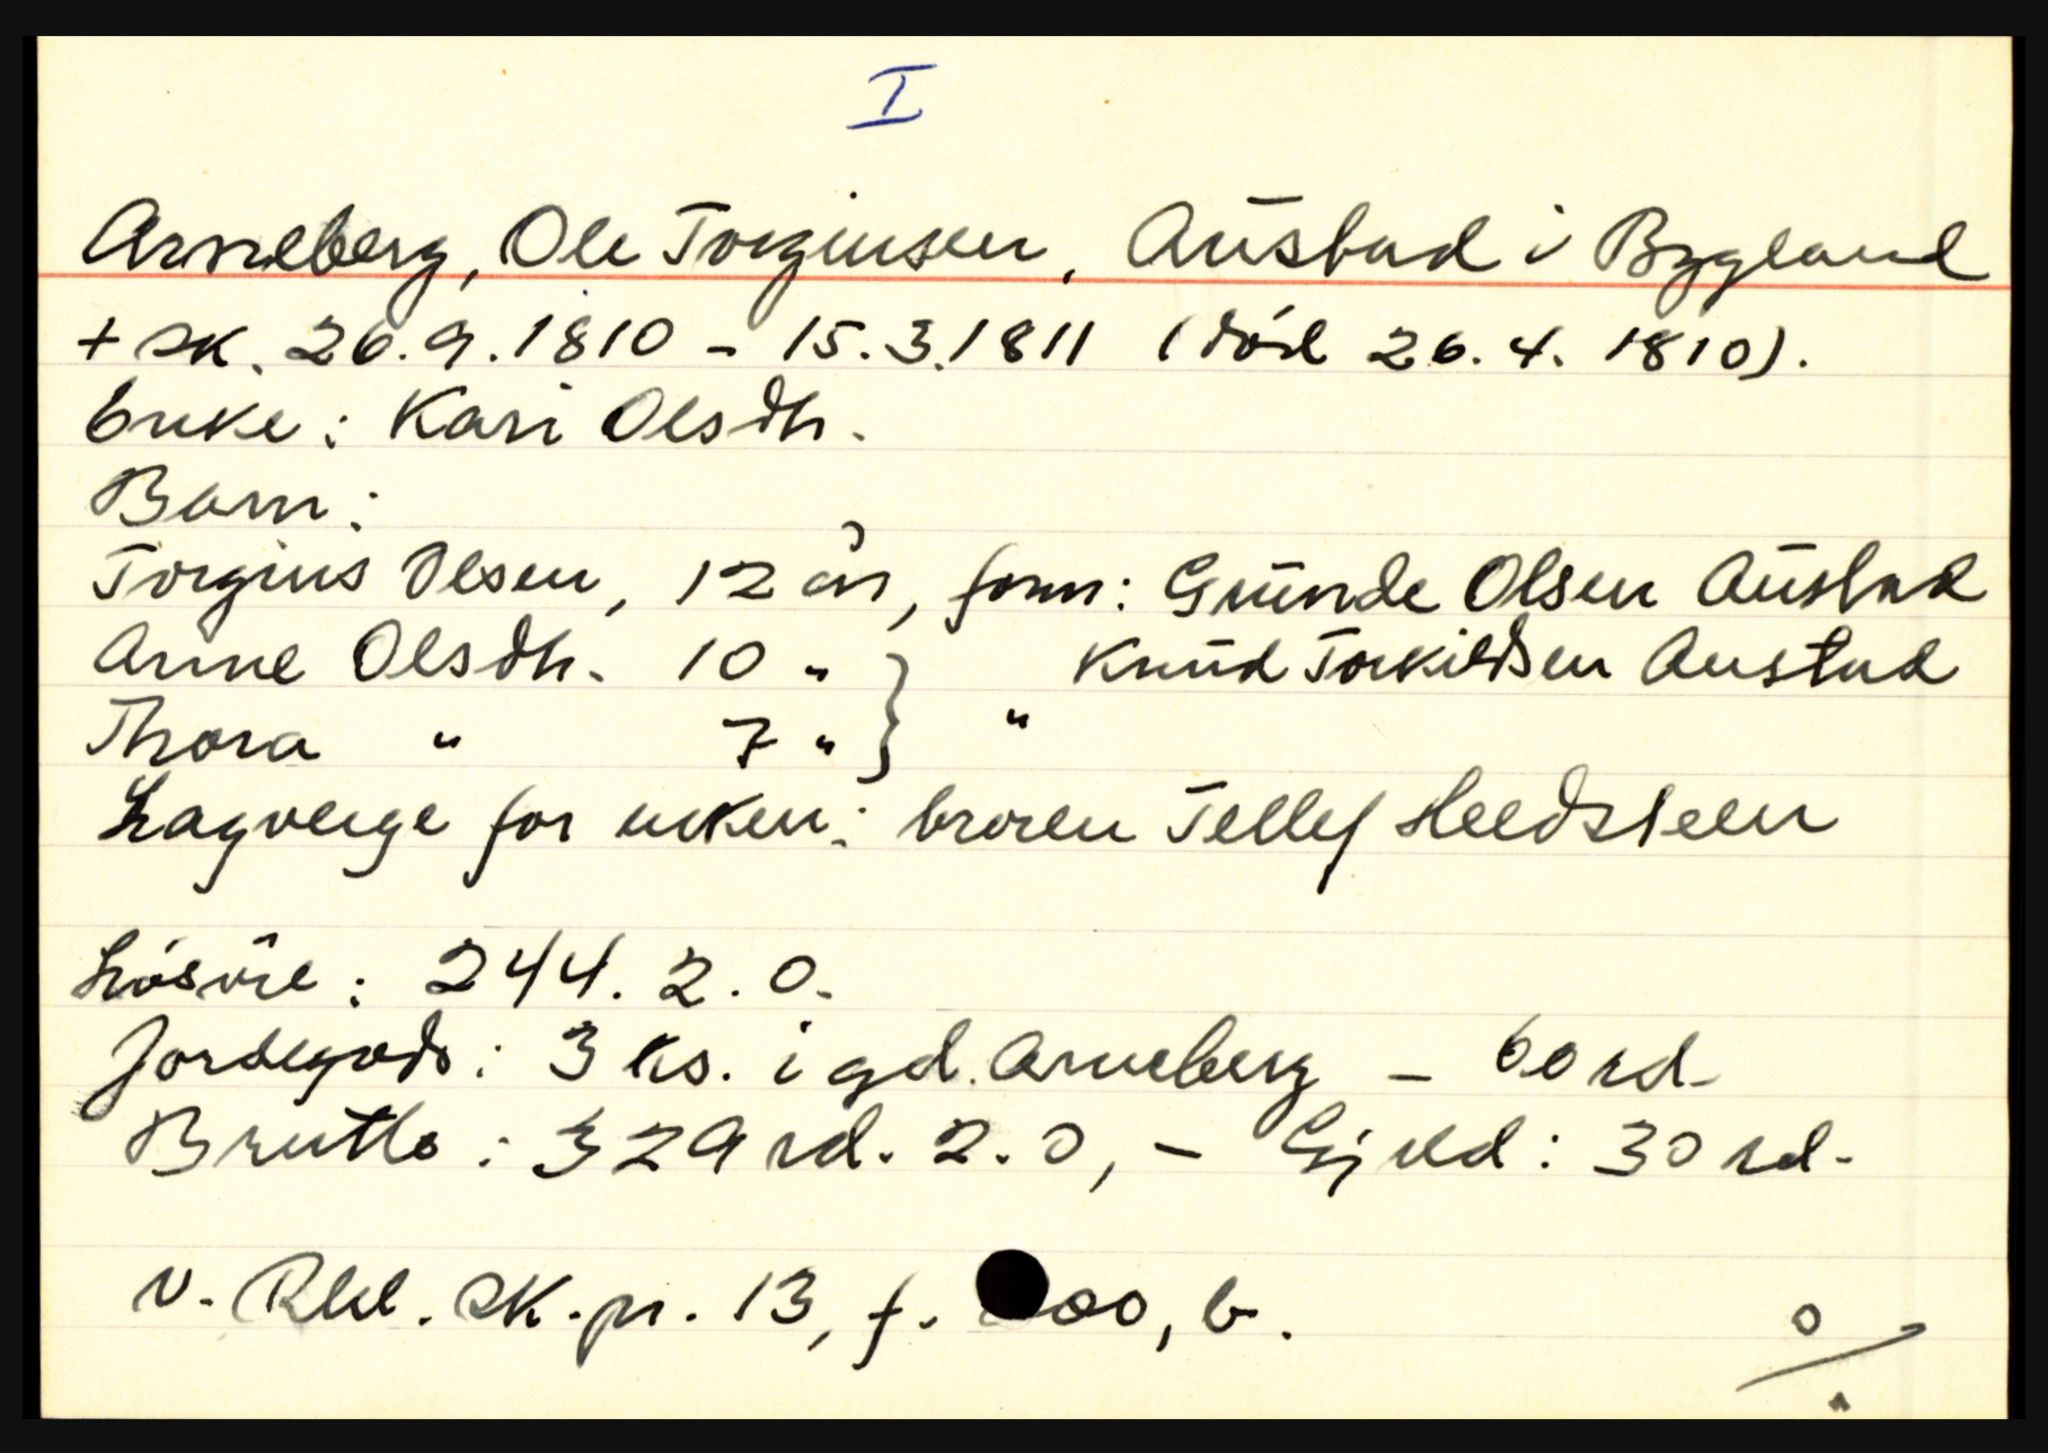 I
Arneberg, Ole Torginsen, Austad i Bygland
+ sk. 26.9.1810 - 15.3.1811 (död 26.4.1810).
Enke: Kari Olsdtr.
Barn:
Torgius Olsen, 12 år, form: Gunde Olsen Austad
Anne Olsdtr. 10 " } " Knud Torkildsen Austad
Thora " 7 "
Lagverge for enken: broren Tellef Heedsteen
Lösöre: 244. 2. 0.
Jordegods: 3 ks. i gd. Arneberg - 60 rd.
Brutto: 329 rd. 2. 0, - Gjeld: 30 rd.
v. Rbl. sk. pr. 13, f. 00, b.